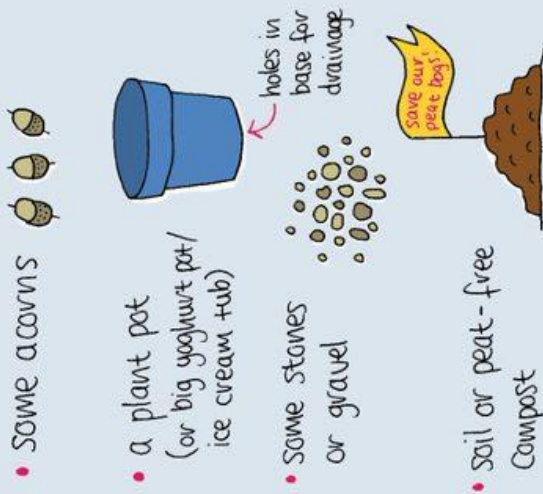 • some acorns
• a plant pot
(or big yoghurt pot/
ice cream tub)
holes in
base for
drainage
• some stones
or gravel
• soil or peat-free
compost
save our
peat bogs!